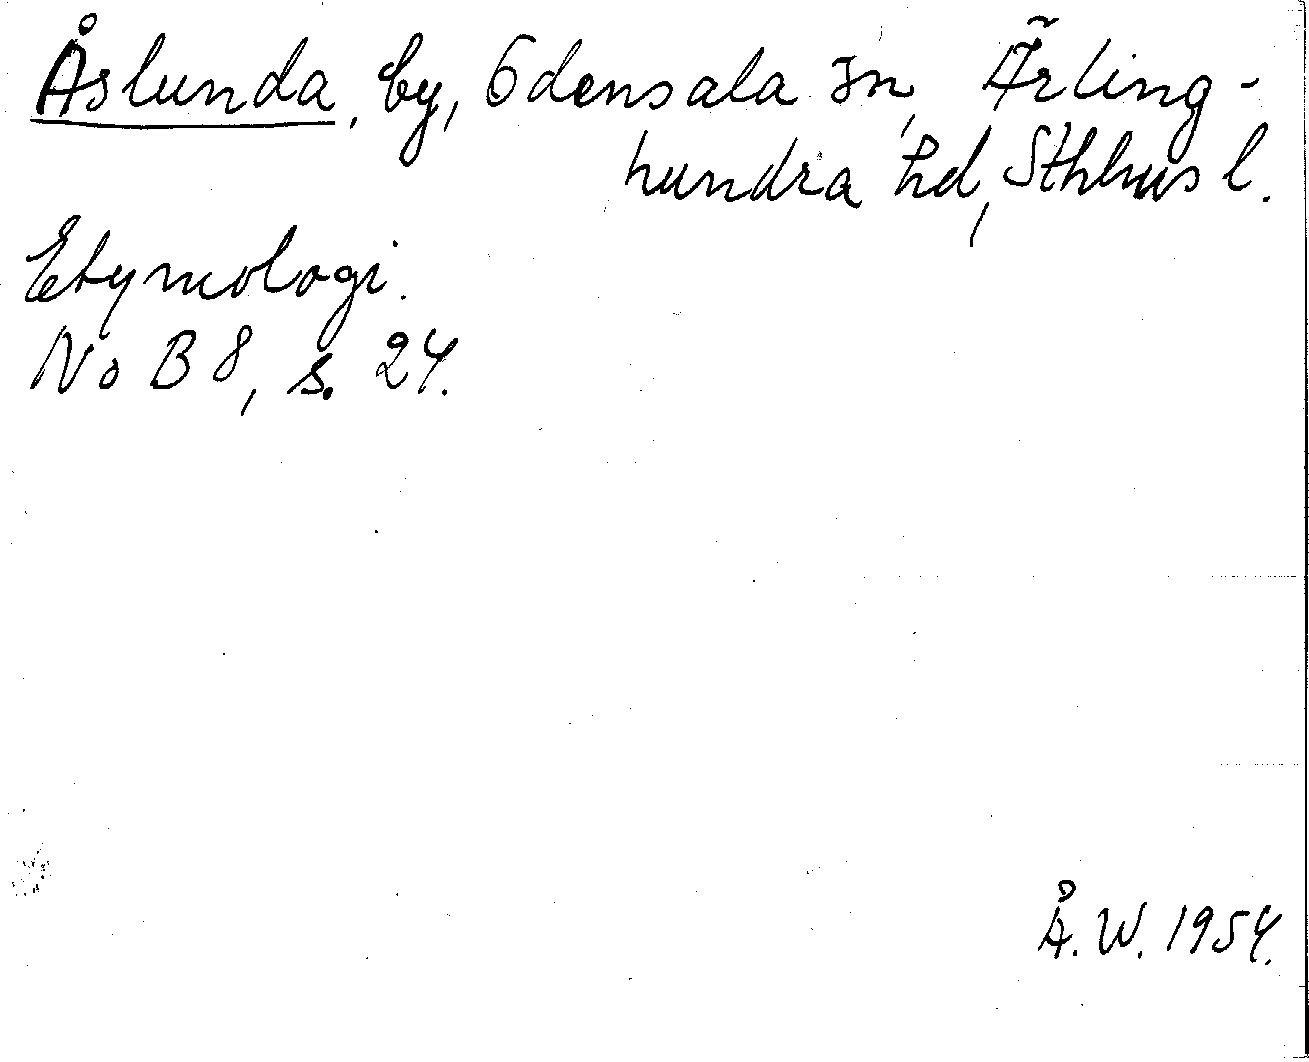 Åslunda, by, Odensala sn, Ärling-
hundra hd, Sthlms l.
Etymologi.
NoB 8, s. 24.
Å.W. 1954.